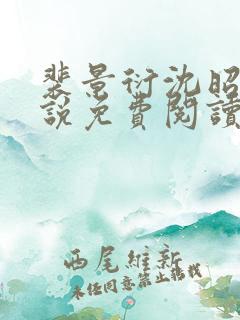 裴景衍沈昭
說免費閱讀
西尾維新
未经同意禁止转载